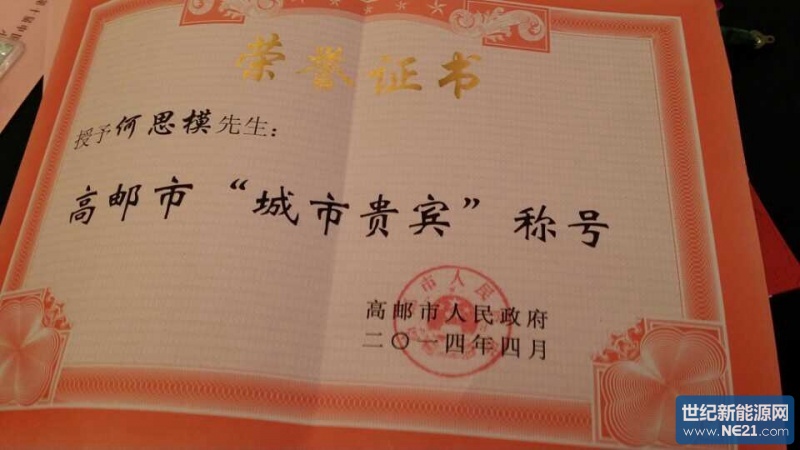 荣誉证书
授予何思模先生：
高邮市“城市贵宾”称号
高邮市人民政府
二〇一四年四月
世纪新能源网
www.NE21.com